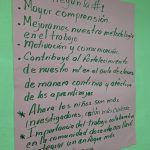 Pregunta #1
• Mayor comprensión
• Mejoramos nuestra metodología
en el trabajo.
• Motivación y comunicación
• Contribuyó al fortalecimiento
de nuestro rol en el aula de clases
de manera continua y efectiva
de los aprendizajes
* Ahora los niños son más
investigadores,
* Importancia del trabajo colaborativo
en la comunidad docente